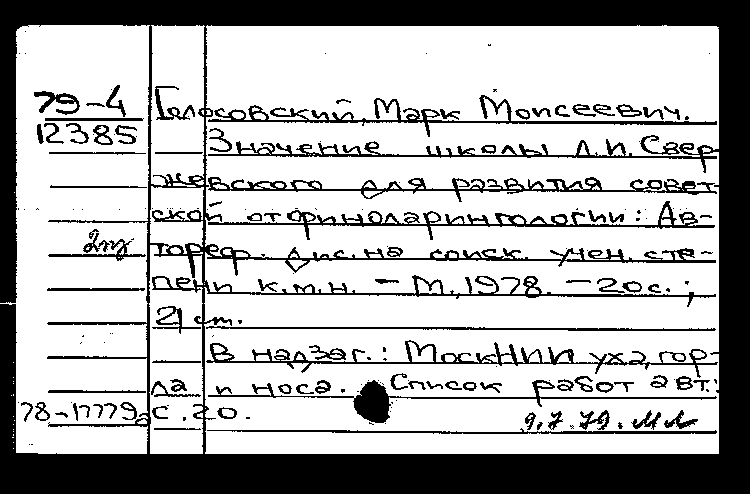 79-4 Голосовский, Марк Моисеевич.
12385 Значение школы Л.И. Свер-
жевского для развития совет-
ской оториноларингологии: Ав-
тореф. дис. на соиск. учен. сте-
пени к.м.н. - М., 1978. - 20 с.;
21 см.
В надзаг.: МоскНИИ уха, гор-
ла и носа. Список работ авт.:
78-17779а с. 20.
9.7.79. МЛ